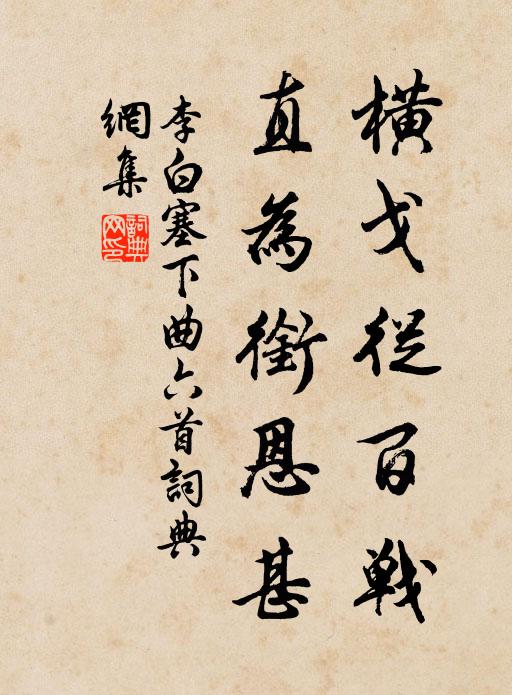 橫戈從百戰
直為銜恩甚
李白塞下曲六首詞典
網集
詞典網印